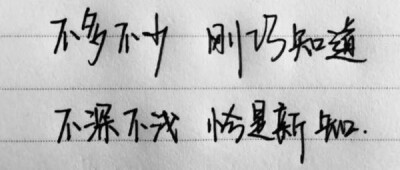 不多不少 刚巧知道
不深不浅 恰是新知.